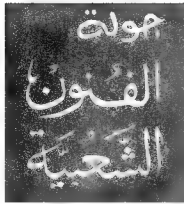 جولة
الفُنون
الشَعبية